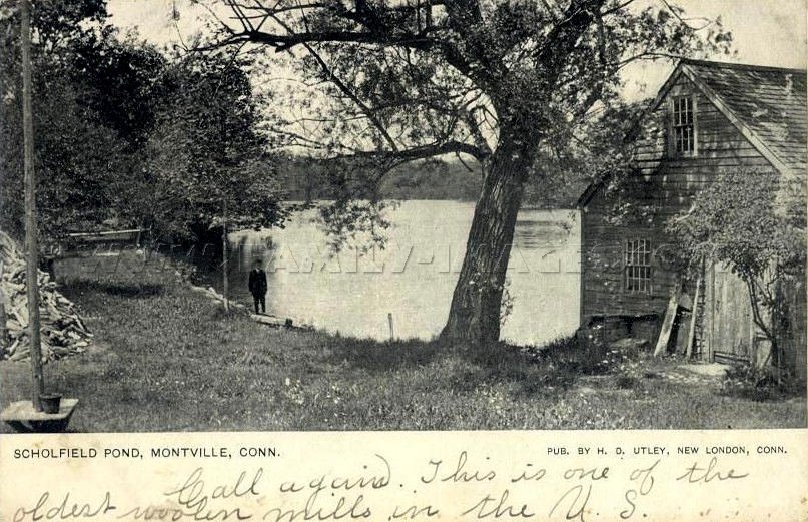 WWW.FAMILY-IMAGES.COM
SCHOLFIELD POND, MONTVILLE, CONN.
PUB. BY H. D. UTLEY, NEW LONDON, CONN.
Call again. This is one of the
oldest woolen mills in the U S.